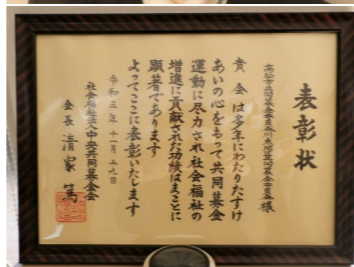 表彰状
高松市共同募金委員会川東校区共同募金委員会 様
貴会は多年にわたりたすけ
あいの心をもって共同募金
運動に尽力され社会福祉の
増進に貢献された功績はまことに
顕著であります
よってここに表彰いたします
令和三年十一月二十九日
社会福祉法人中央共同募金会
会長 清家 篤